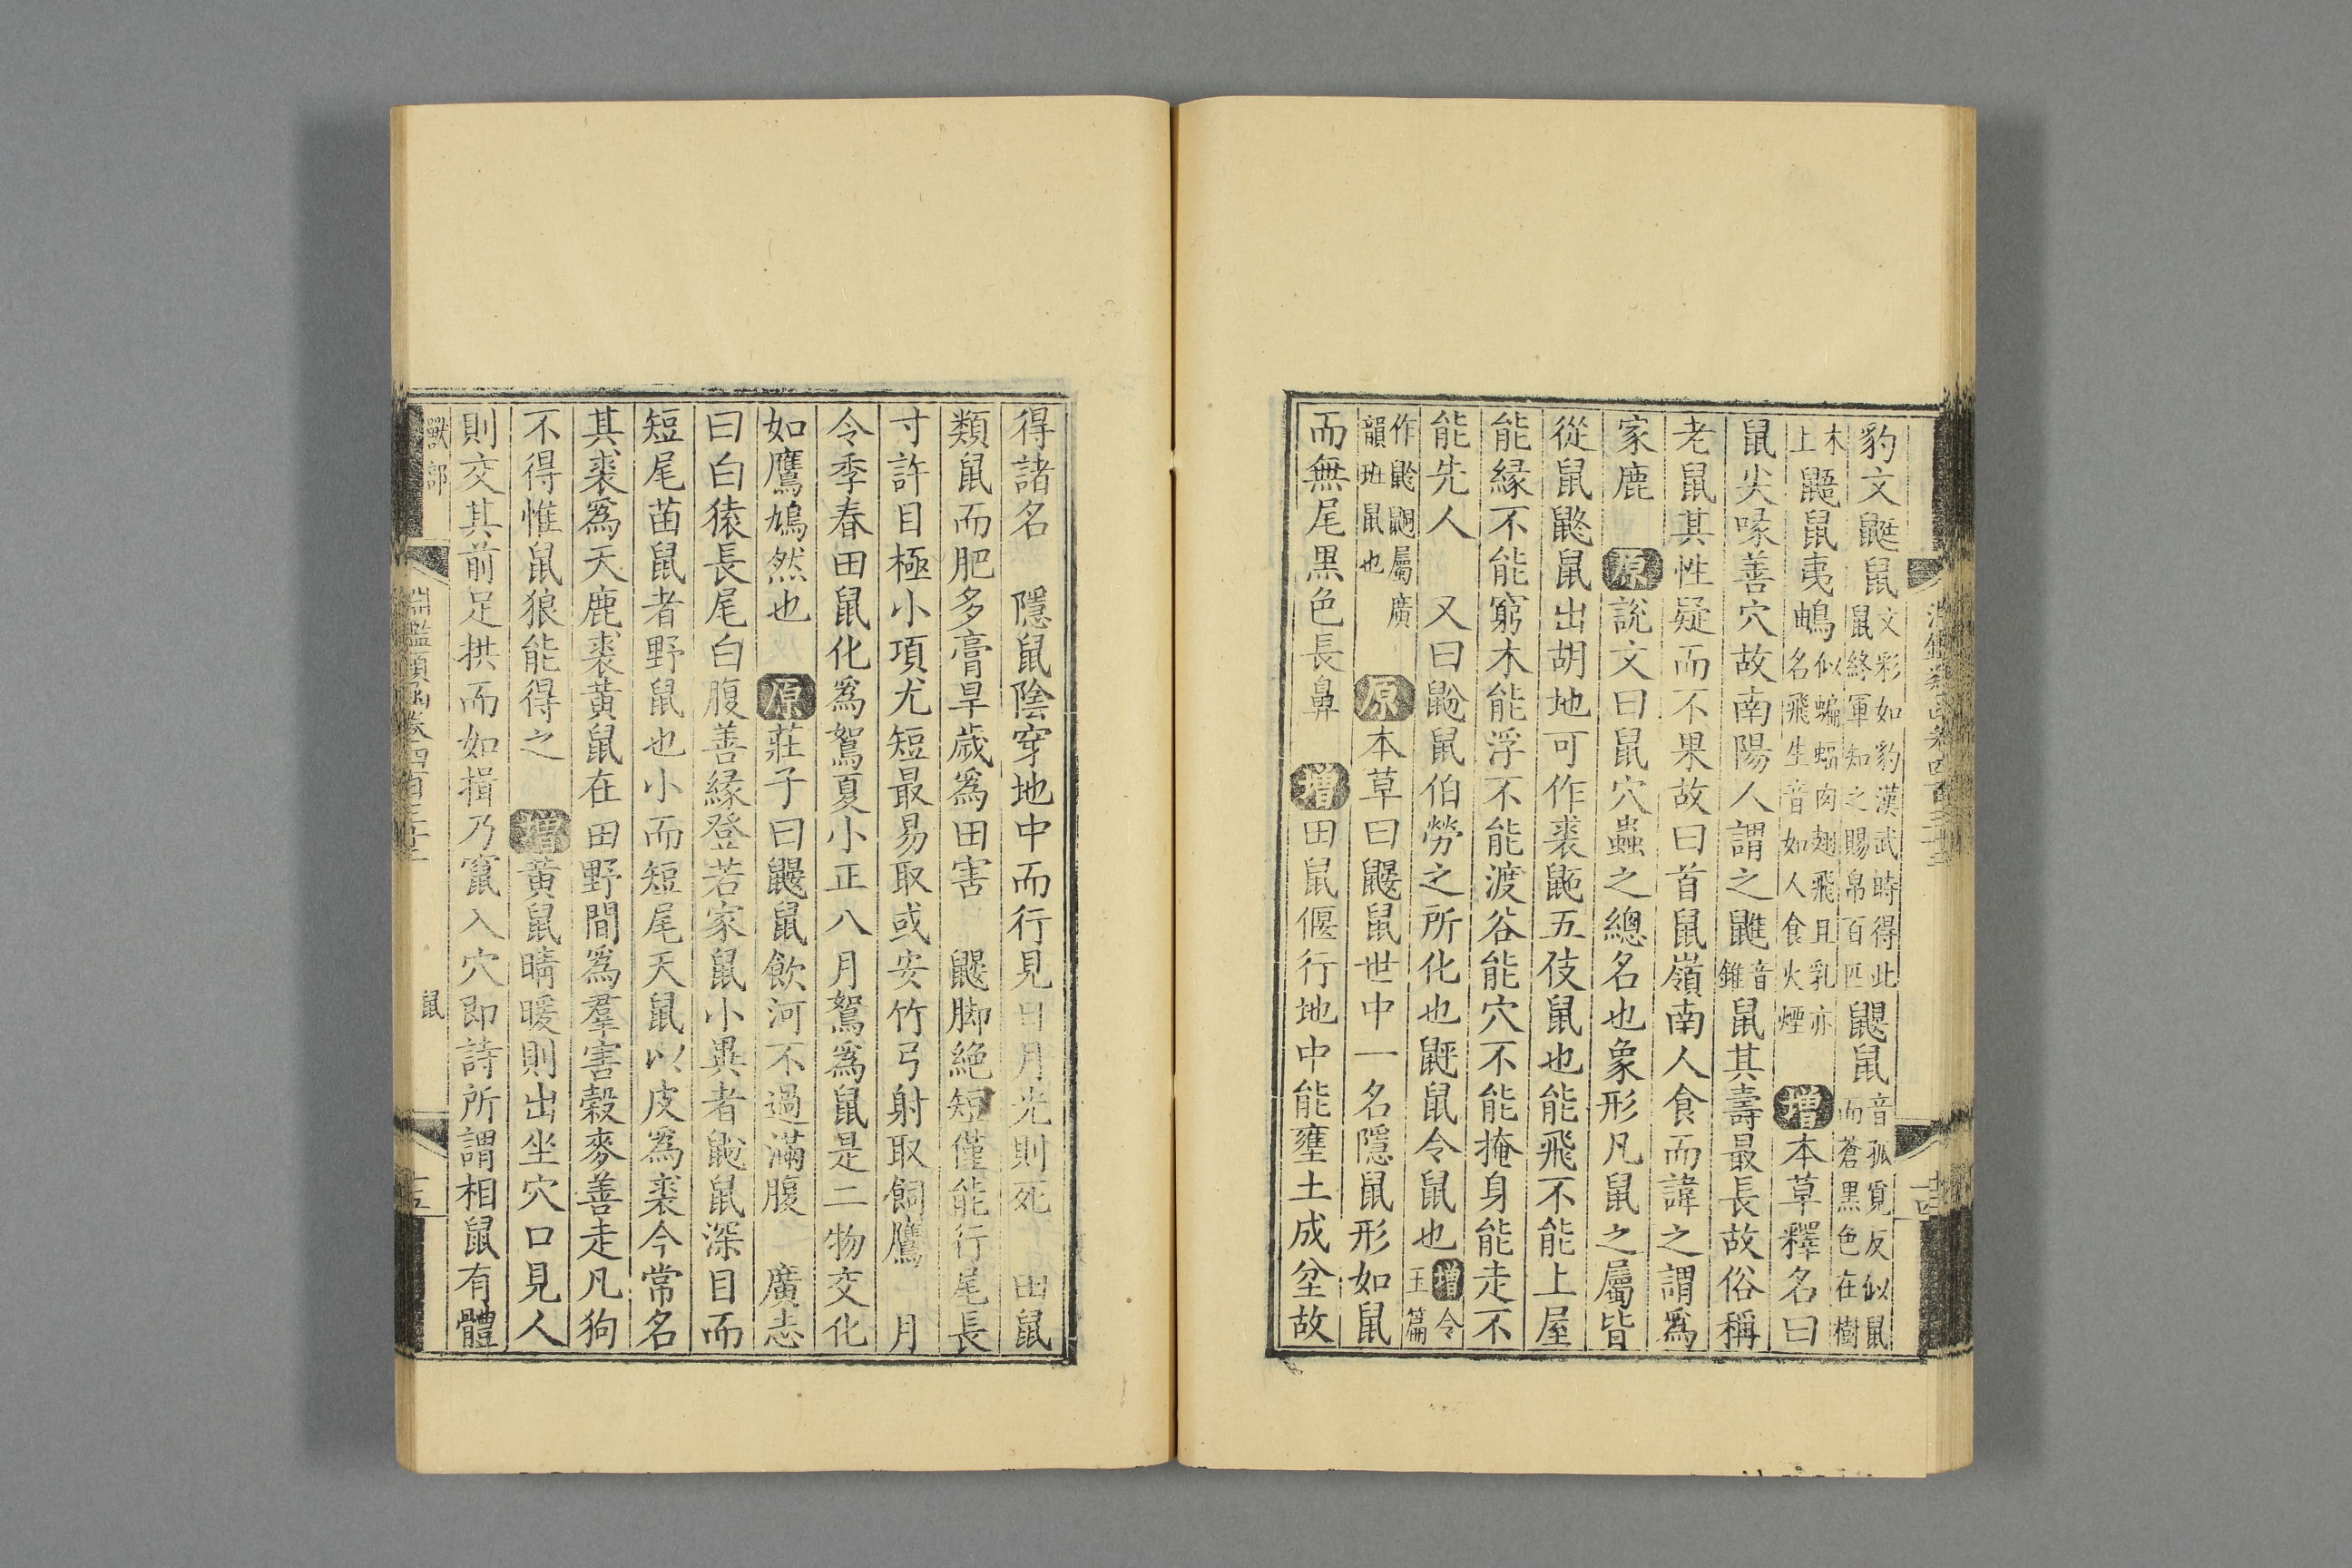 豹文鼮鼠文彩如豹漢武時得此鼠終軍知之賜帛百匹鼳鼠音孤覓反似鼠而蒼黑色在樹
木上鼯鼠夷鴣似蝙蝠肉翅飛且乳亦名飛生音如人食火煙增本草釋名曰
鼠尖喙善穴故南陽人謂之䶆音錐鼠其壽最長故俗稱
老鼠其性疑而不果故曰首鼠嶺南人食而諱之謂爲
家鹿原說文曰鼠穴蟲之總名也象形凡鼠之屬皆
從鼠鼨鼠出胡地可作裘鼫五伎鼠也能飛不能上屋
能緣不能窮木能浮不能渡谷能穴不能掩身能走不
能先人又曰鼢鼠伯勞之所化也鼶鼠令鼠也增令玉篇
作䶃䶄屬廣韻班鼠也原本草曰鼴鼠世中一名隱鼠形如鼠
而無尾黑色長鼻增田鼠偃行地中能壅土成坌故
得諸名隱鼠陰穿地中而行見日月光則死田鼠
類鼠而肥多膏旱歲爲田害鼴脚絶短僅能行尾長
寸許目極小項尤短最易取或安竹弓射取飼鷹月
令季春田鼠化爲鴽夏小正八月鴽爲鼠是二物交化
如鷹鳩然也原莊子曰鼴鼠飲河不過滿腹廣志
曰白猿長尾白腹善緣登若家鼠小異者鼢鼠深目而
短尾苗鼠者野鼠也小而短尾天鼠以皮爲裘今常名
其裘爲天鹿裘黃鼠在田野間爲羣害穀麥善走凡狗
不得惟鼠狼能得之增黃鼠晴暖則出坐穴口見人
則交其前足拱而如揖乃竄入穴即詩所謂相鼠有體
獸部 鼠 十五